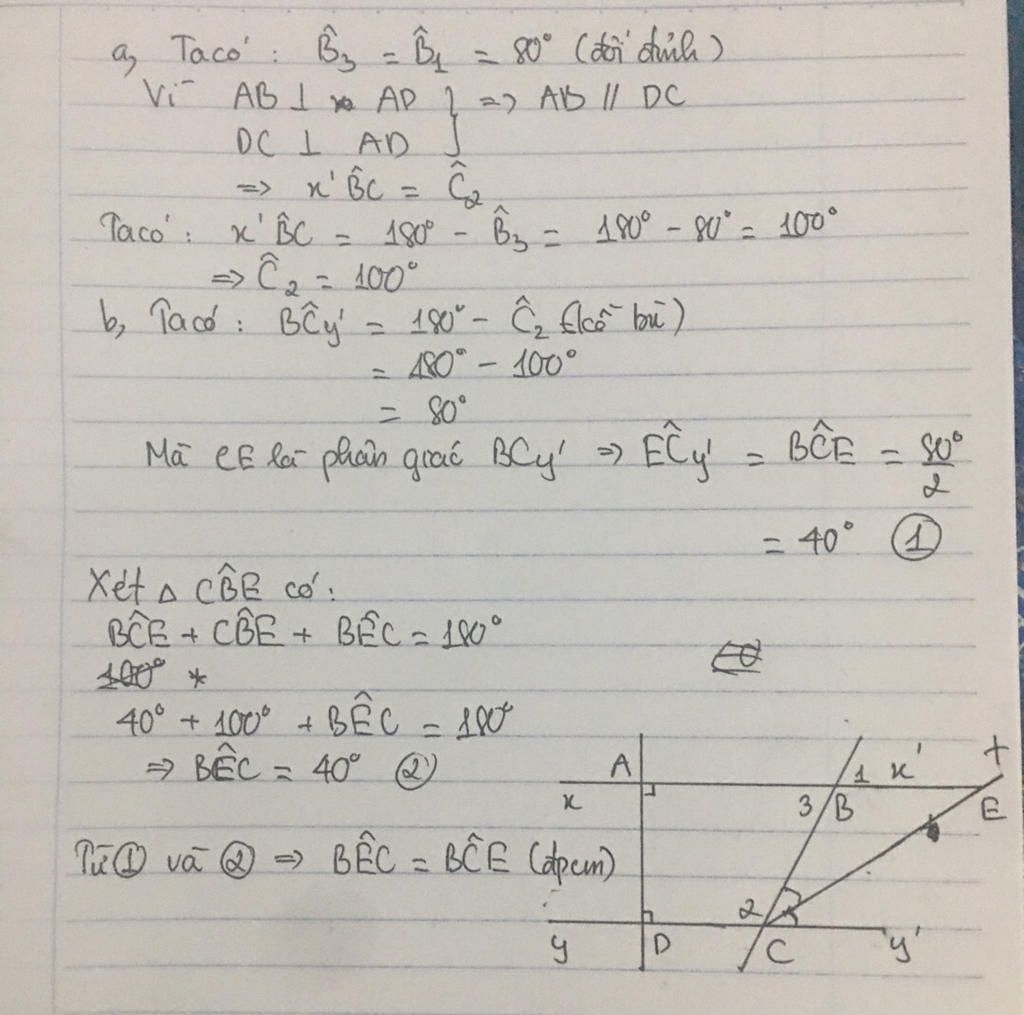 a, Ta có : B̂₃ = B̂₁ = 80° (đối đỉnh)
Vì AB ⊥ AD } => AB // DC
DC ⊥ AD
=> x'B̂C = Ĉ₂
Ta có : x'B̂C = 180° - B̂₃ = 180° - 80° = 100°
=> Ĉ₂ = 100°
b, Ta có : BĈy' = 180° - Ĉ₂ (kề bù)
= 180° - 100°
= 80°
Mà CE là phân giác BCy' => EĈy' = BĈE = 80°/2
= 40° ①
Xét △ CB̂E có :
BĈE + CB̂E + BÊC = 180°
40° + 100° + BÊC = 180°
=> BÊC = 40° ②
Từ ① và ② => BÊC = BĈE (đpcm)
A 1 x' t
x 3 B E
2
y D C y'